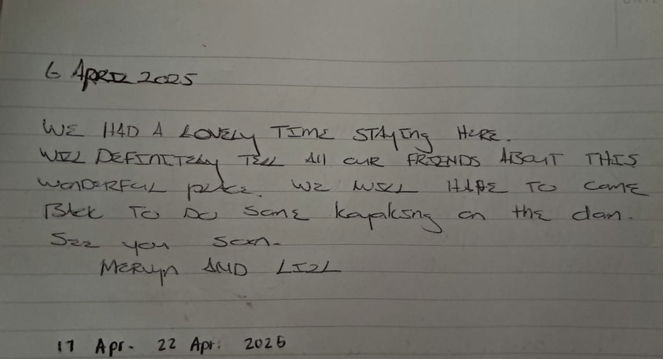 6 APRIL 2025
WE HAD A LOVELY TIME STAYING HERE.
WILL DEFINITELY TELL All OUR FRIENDS ABOUT THIS
WONDERFUL place. WE WILL HAVE TO COME
BACK TO DO SOME kayaking on the dam.
SEE you soon.
MERVyn AND LIZL
17 Apr- 22 Apr. 2025